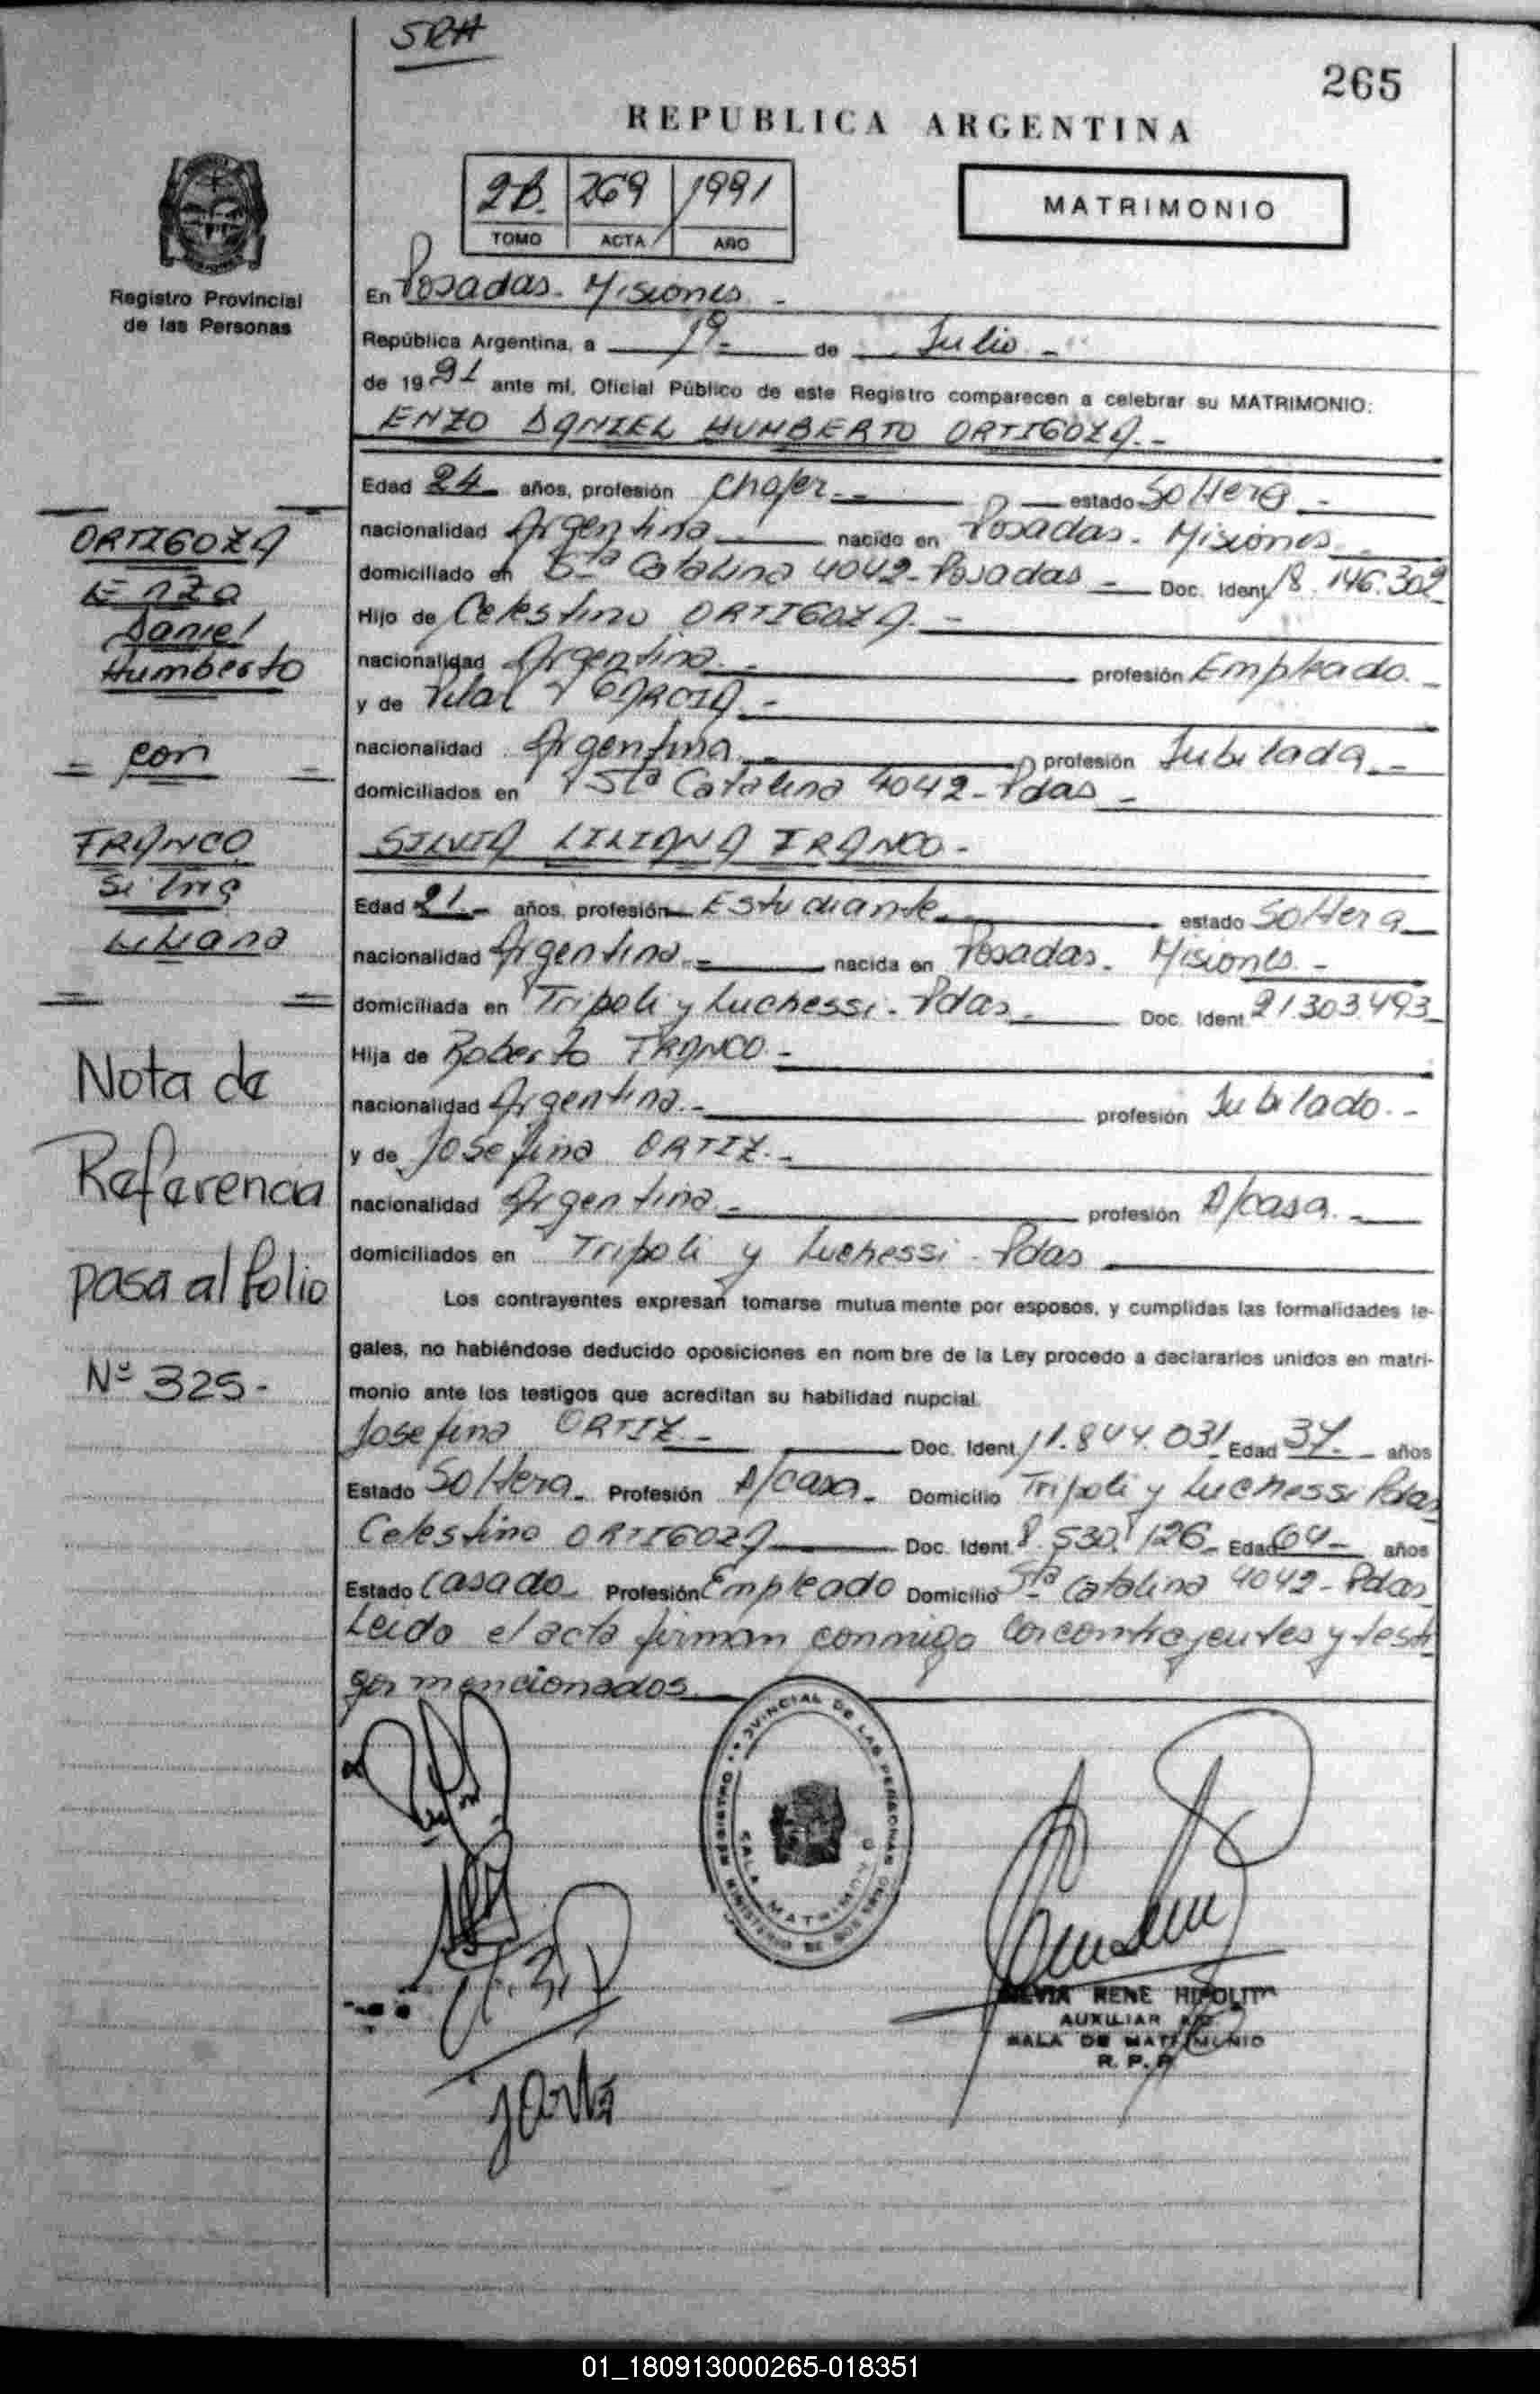 SRA
265
REPUBLICA ARGENTINA
2B. 269 1991
TOMO ACTA AÑO
MATRIMONIO
Registro Provincial
de las Personas
En Posadas - Misiones -
República Argentina, a de Julio -
de 1991 ante mi, Oficial Público de este Registro comparecen a celebrar su MATRIMONIO:
ENZO DANIEL HUMBERTO ORTIGOZA.-
Edad 24 años, profesión Chofer.- estado Soltero -
nacionalidad Argentina nacido en Posadas - Misiones
domiciliado en Sta Catalina 4042 - Posadas - Doc. Ident. 18.146.302
Hijo de Celestino ORTIGOZA.-
nacionalidad Argentina.- profesión Empleado.-
y de GARCIA.-
nacionalidad Argentina profesión Jubilada.-
domiciliados en Sta Catalina 4042 - Pdas -
SILVIA LILIANA FRANCO.-
Edad 21.- años, profesión Estudiante estado Soltera
nacionalidad Argentina.- nacida en Posadas - Misiones.-
domiciliada en Tripoli y Luchessi - Pdas. Doc. Ident. 21.303.493
Hija de Roberto FRANCO.-
nacionalidad Argentina.- profesión Jubilado.-
y de Josefina ORTIZ.-
nacionalidad Argentina.- profesión A/casa.-
domiciliados en Tripoli y Luchessi - Pdas
Los contrayentes expresan tomarse mutua mente por esposos, y cumplidas las formalidades le-
gales, no habiéndose deducido oposiciones en nom bre de la Ley procedo a declararlos unidos en matri-
monio ante los testigos que acreditan su habilidad nupcial.
Josefina ORTIZ.- Doc. Ident. 11.844.031 Edad 37.- años
Estado Soltera.- Profesión A/casa.- Domicilio Tripoli y Luchessi Pdas
Celestino ORTIGOZA Doc. Ident. 8.530.126 Edad 64- años
Estado Casado Profesión Empleado Domicilio Sta Catalina 4042 - Pdas
Leida el acta firman conmigo los contrayentes y testi
gos mencionados.
ORTIGOZA
Enzo
Daniel
Humberto
= con =
FRANCO
Silvia
Liliana
Nota de
Referencia
pasa al folio
Nº 325-
REGISTRO PROVINCIAL DE LAS PERSONAS
SALA MATRIMONIO
MINISTERIO DE GOBIERNO
RENE HIPOLIT
AUXILIAR
SALA DE MATRIMONIO
R. P. P.
01_180913000265-018351